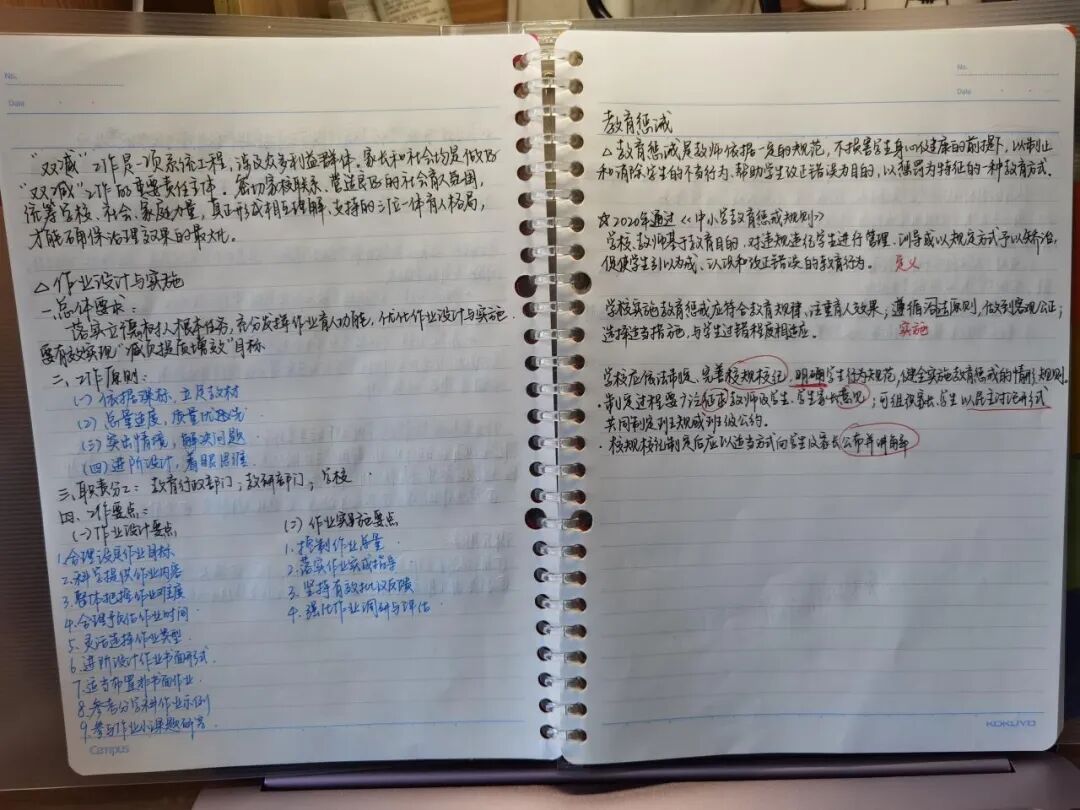 No.
Date
"双减"工作是一项系统工程,涉及众多利益群体。家长和社会均是做好
"双减"工作的重要责任主体。密切家校联系,营造良好的社会育人氛围,
统筹学校、社会、家庭力量,真正形成相互理解、支持的三位一体育人格局,
才能确保治理效果的最大化。
△作业设计与实施
一.总体要求:
落实立德树人根本任务,充分发挥作业育人功能,优化作业设计与实施.
要有效实现"减负提质增效"目标
二、工作原则:
(一)依据课标,立足教材
(二)总量适度,质量优
(三)突出情境,解决问题
(四)进阶设计,着眼思维.
三.职责分工:教育行政部门;教研部门;学校
四、工作要点:
(一)作业设计要点
1.合理设定作业目标
2.科学提供作业内容
3.整体把握作业难度
4.合理预估作业时间
5.灵活选择作业类型.
6.进阶设计作业书面形式.
7.适当布置非书面作业.
8.参考分学科作业示例
9.参与作业小课题研究.
(二)作业实施要点
1.控制作业总量.
2.落实作业完成指导
3.坚持有效批改反馈
4.强化作业调研与评估.
Campus
No.
Date
教育惩诫
△教育惩诫是教师依据一定的规范,不损害学生身心健康的前提下,以制止
和消除学生的不当行为,帮助学生改正错误为目的,以惩罚为特征的一种教育方式.
☆2020年通过《中小学教育惩戒规则》
学校、教师基于教育目的,对违规违纪学生进行管理、训导或以规定方式予以矫治,
促使学生引以为戒、认识和改正错误的教育行为。 定义
学校实施教育惩戒应符合教育规律,注重育人效果;遵循法治原则,做到客观公正;
选择适当措施,与学生过错程度相适应. 实施
学校应依法制定、完善校规校纪,明确学生行为规范,健全实施教育惩戒的情形规则.
·制定过程要广泛征求教师及学生、学生家长意见;可组织家长、学生以民主讨论形式
共同制定班规或班级公约.
·校规校纪制定后应以适当方式向学生及家长公布并讲解
KOKUYO